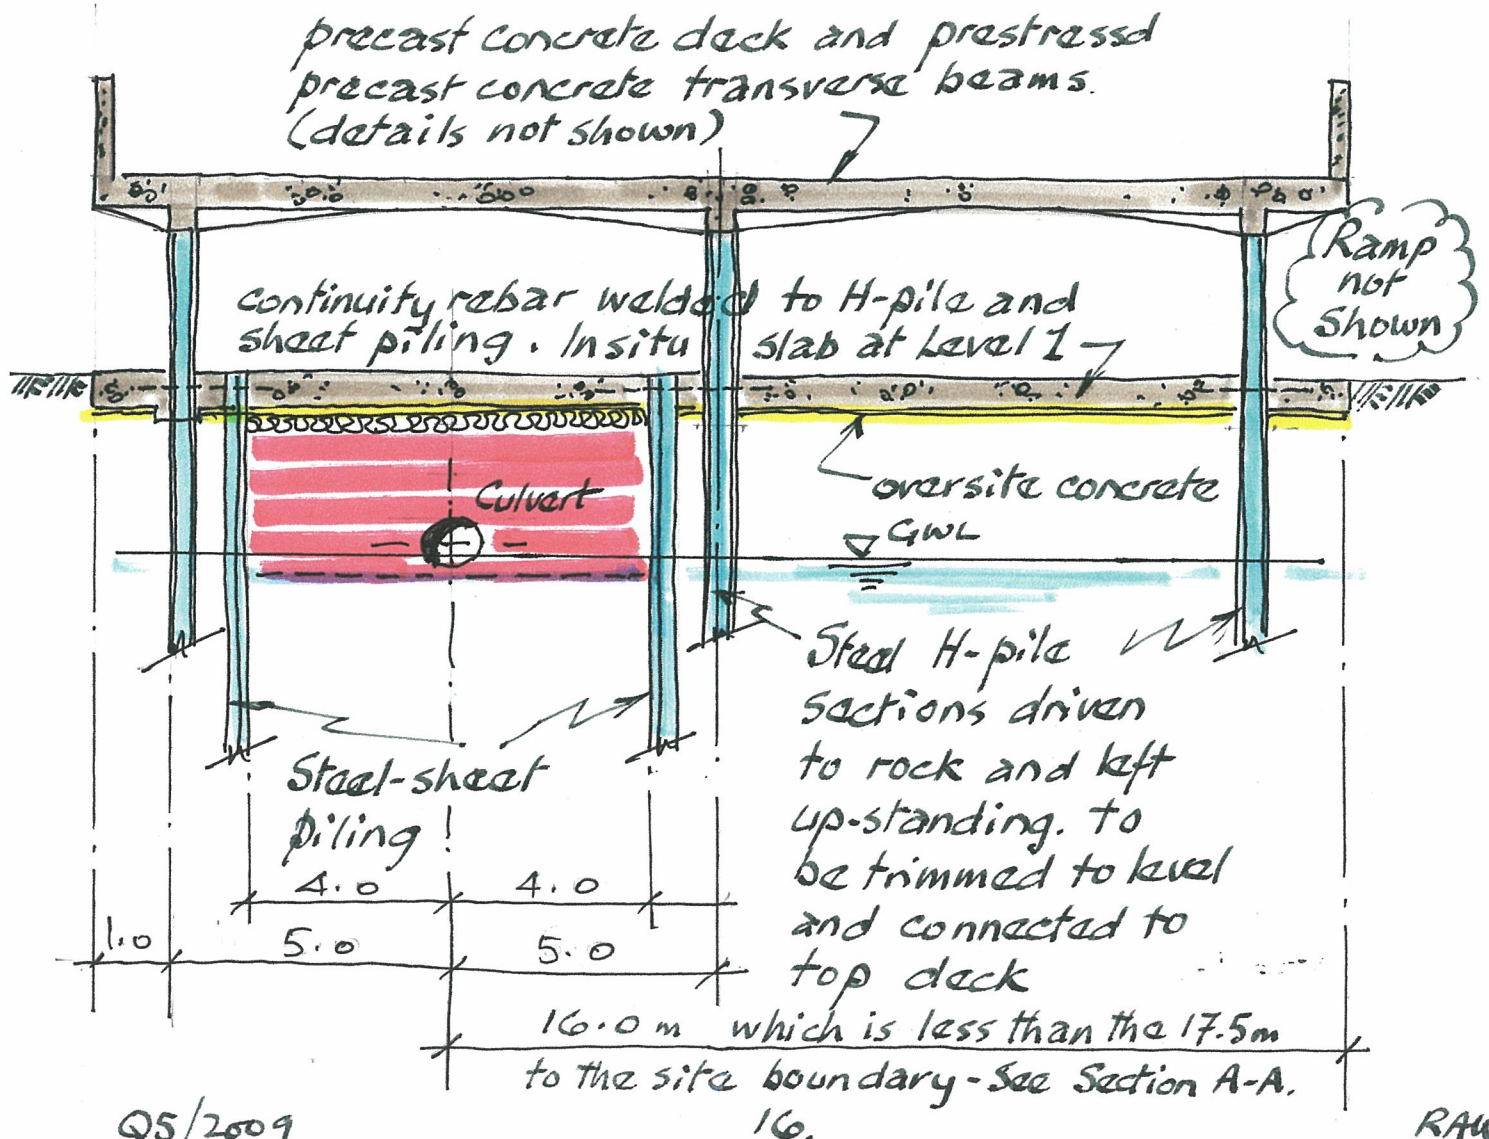 precast concrete deck and prestressd
precast concrete transverse beams.
(details not shown)
Ramp
not
shown
continuity rebar welded to H-pile and
sheet piling. Insitu slab at Level 1
Culvert
oversite concrete
GWL
Steel H-pile
sections driven
to rock and left
up-standing. to
be trimmed to level
and connected to
top deck
Steel-sheet
piling
4.0 4.0
1.0 5.0 5.0
16.0 m which is less than the 17.5m
to the site boundary - See Section A-A.
Q5/2009 16.